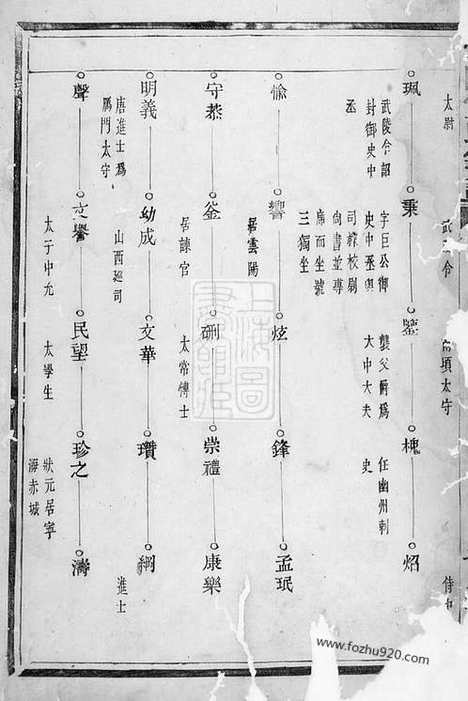 太尉
武
令
項太守
侍
珮
武陵令詔
封御史中
丞
秉
字臣公御
史中丞與
司隸校尉
尚書並專
席而坐號
三獨坐
鑒
襲父爵爲
大中大夫
槐
任幽州刺
史
炤
愉
響
居雲陽
炫
鋒
孟珉
守恭
崟
居諫官
硎
太常博士
崇禮
康樂
明義
唐進士爲
鴈門太守
幼成
山西廵司
文華
瓚
綱
進士
聲
文譽
太子中允
民望
太學生
珍之
狀元居寧
海赤城
濤
上海圖
書館藏
www.fozhu920.com